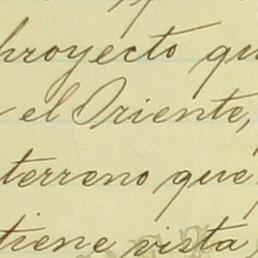 proyecto qu
el Oriente,
terreno que
tiene vista